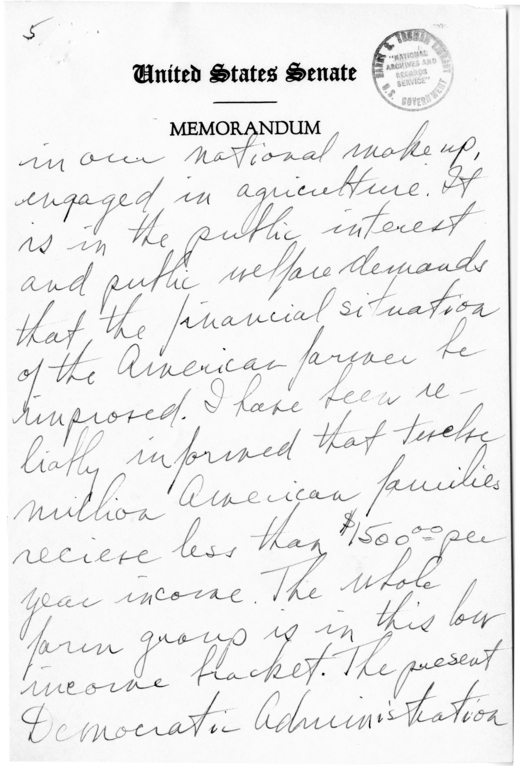 5
HARRY S. TRUMAN LIBRARY
"NATIONAL
ARCHIVES AND
RECORDS
SERVICE"
U.S. GOVERNMENT
United States Senate
MEMORANDUM
in our national make up,
engaged in agriculture. It
is in the public interest
and public welfare demands
that the financial situation
of the American farmer be
improved. I have been re-
liably informed that twelve
million American families
recieve less than $1500.00 per
year income. The whole
farm group is in this low
income bracket. The present
Democratic Administration